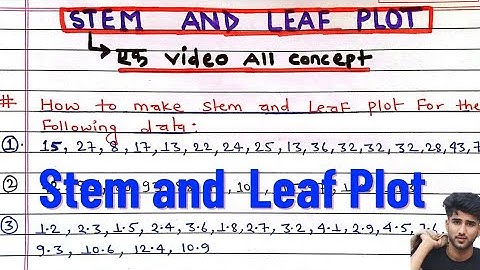 STEM AND LEAF PLOT
एक video All concept
# How to make stem and Leaf plot For the
Following data:
① 15, 27, 8, 17, 13, 22, 24, 25, 13, 36, 32, 32, 32, 28, 43, 7
②
Stem and Leaf Plot
③ 1.2, 2.3, 1.5, 2.4, 3.6, 1.8, 2.7, 3.2, 4.1, 2.9, 4.5,
9.3, 10.6, 12.4, 10.9